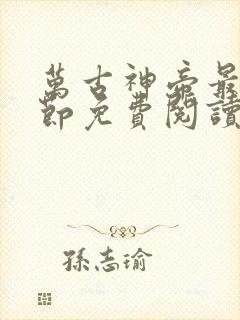 萬古神帝最
節免費閱讀
孫志瑜